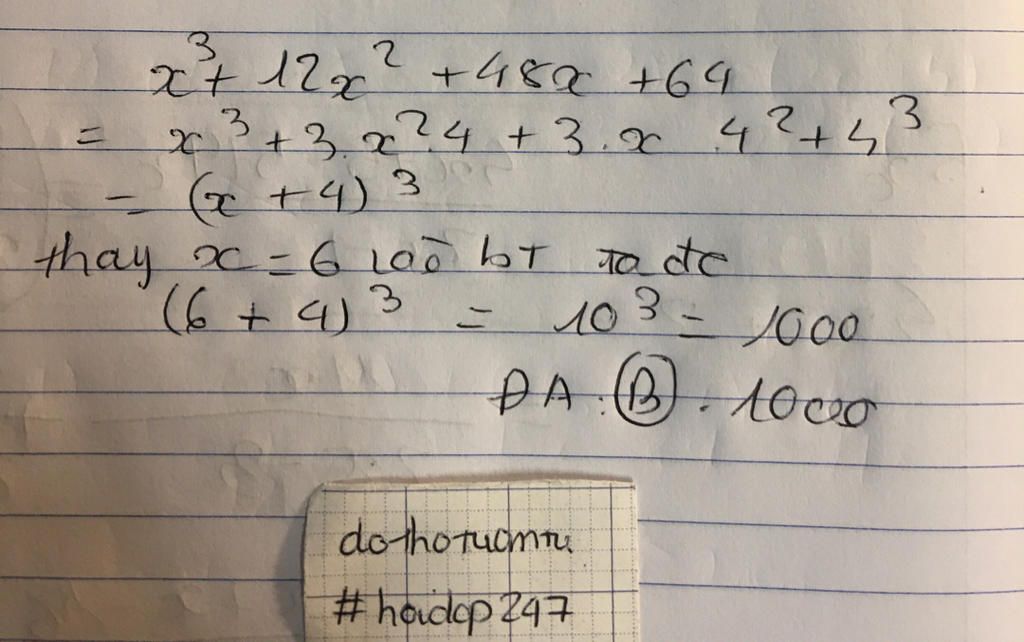 x³ + 12x² + 48x + 64
= x³ + 3.x².4 + 3.x.4² + 4³
= (x + 4)³
thay x = 6 vào bt ta đc
(6 + 4)³ = 10³ = 1000
ĐA: B. 1000
dothotuantu.
#hoidap247